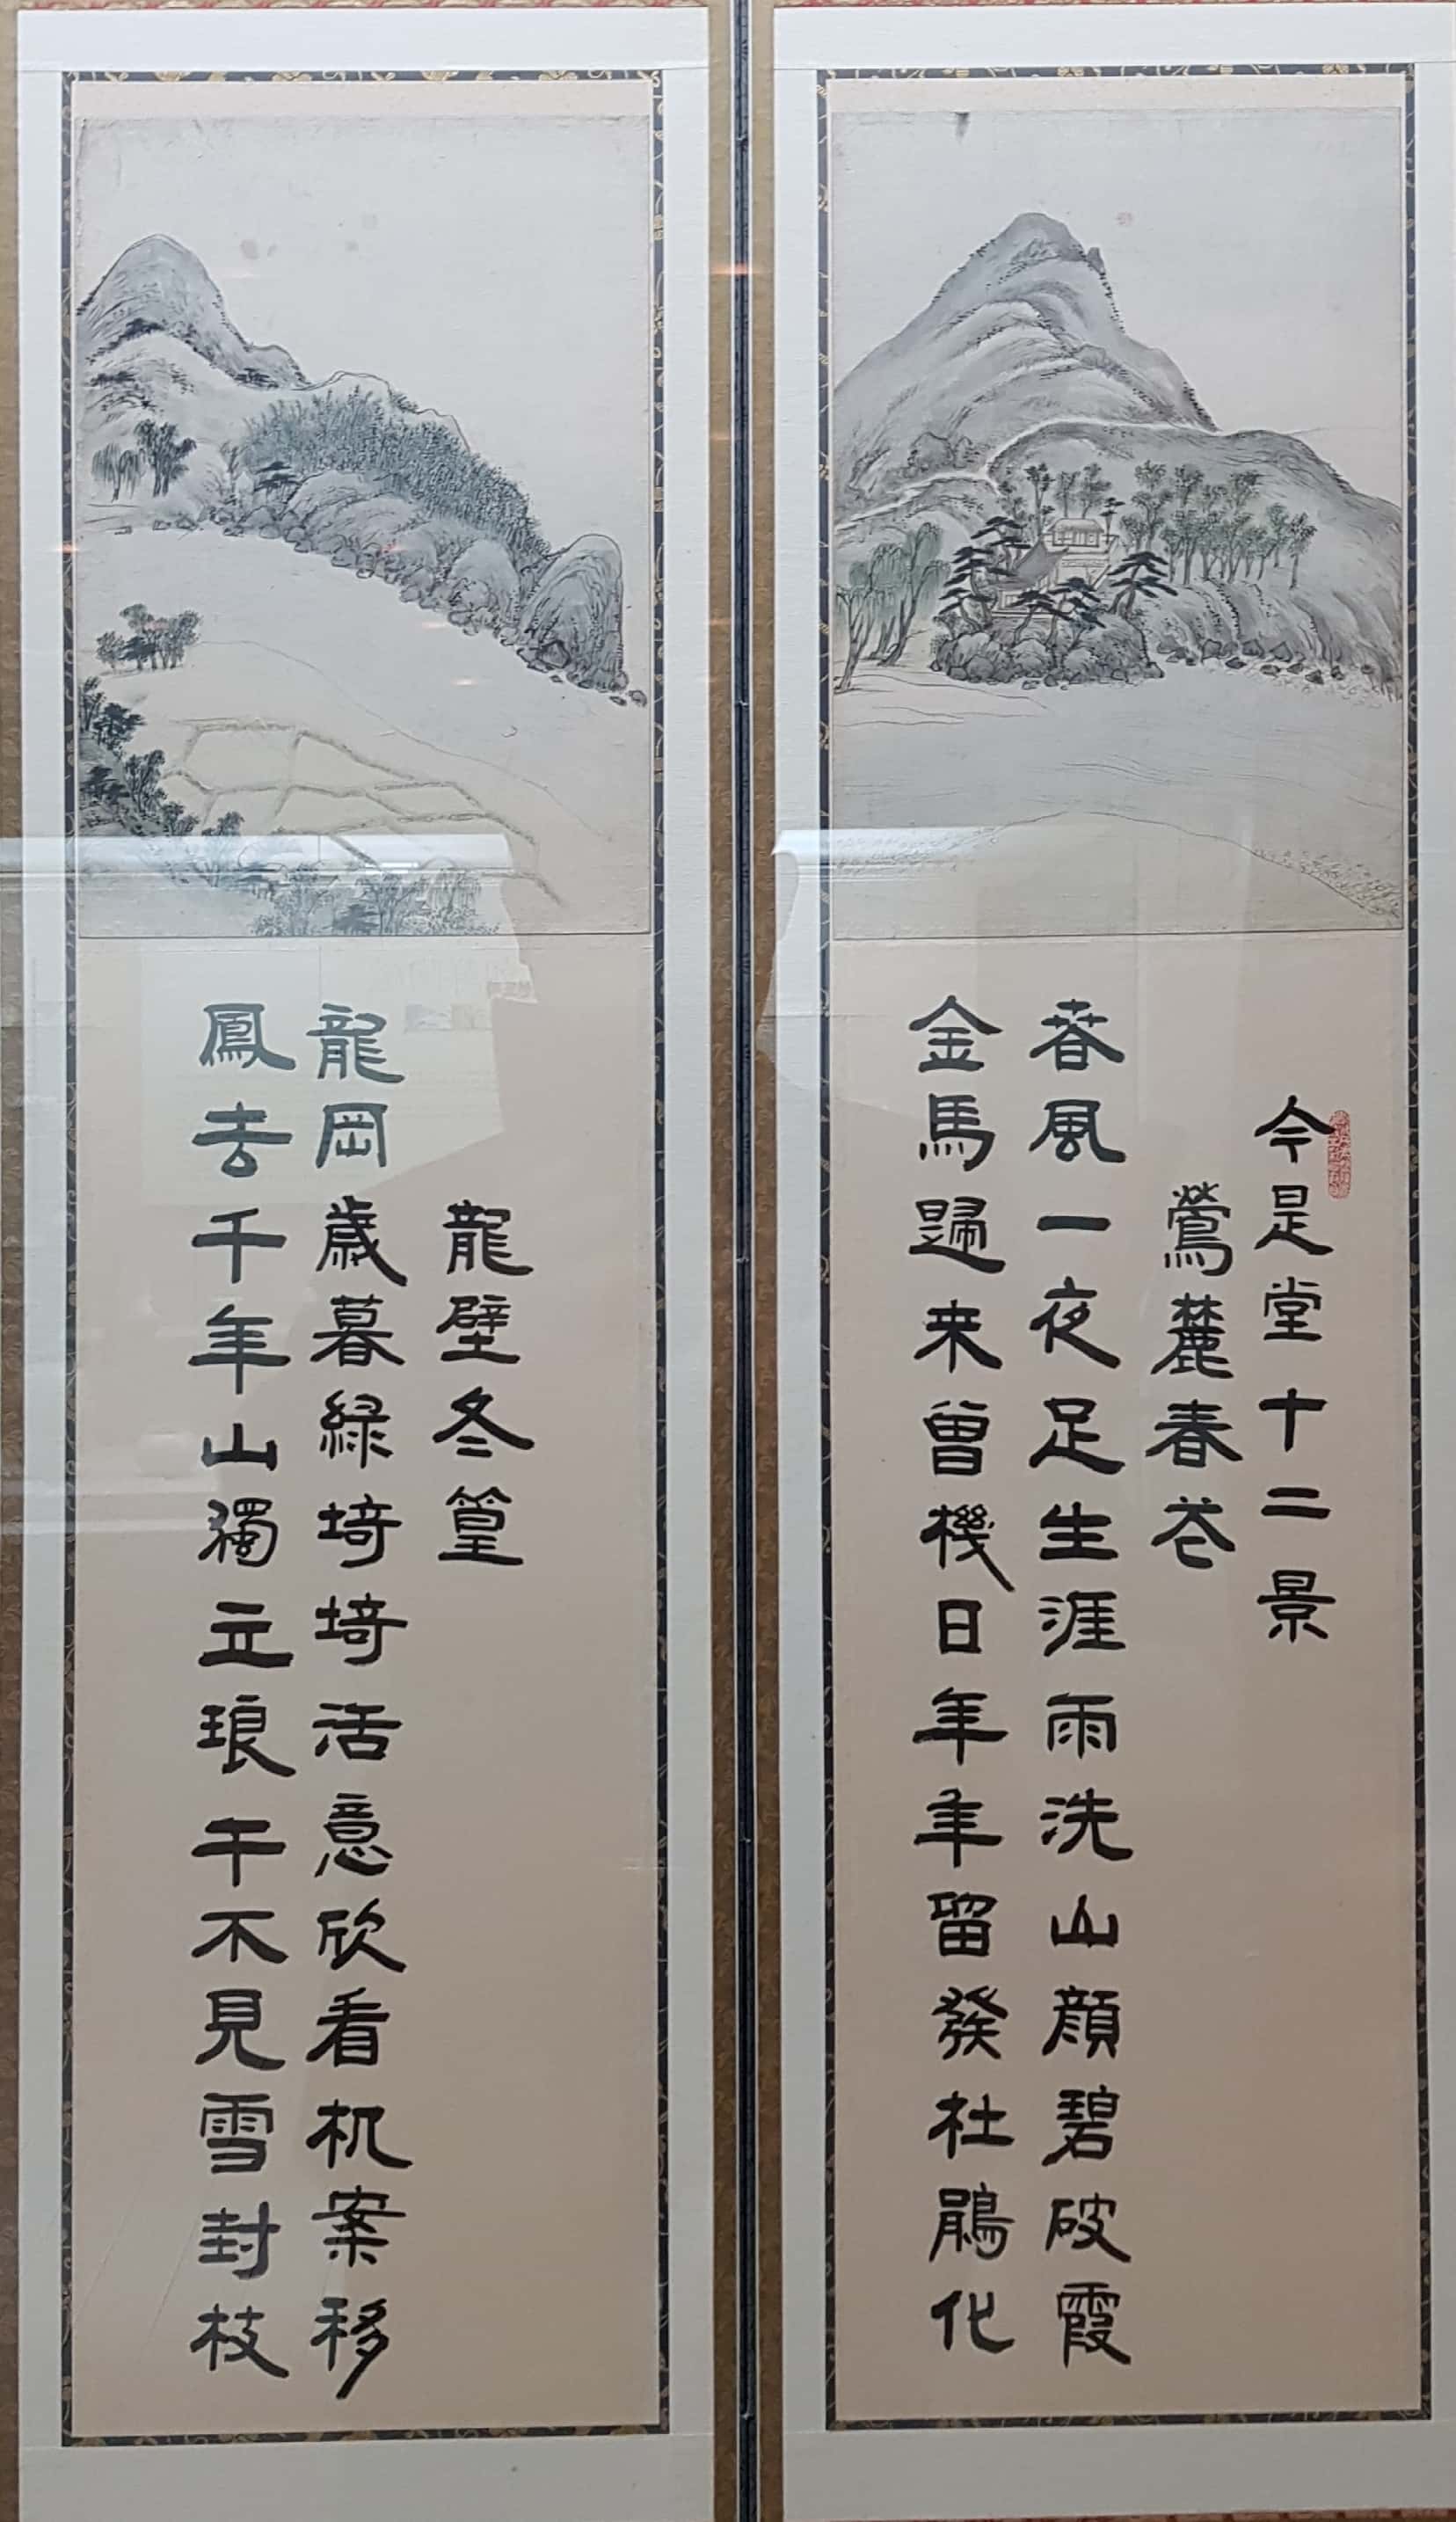 今是堂十二景
鶯麓春花
春風一夜足生涯雨洗山顔碧破霞
金馬歸来曾機日年年留發杜鵑化
龍壁冬篁
龍岡歲暮綠埼埼活意欣看机案移
鳳去千年山獨立琅干不見雪封枝